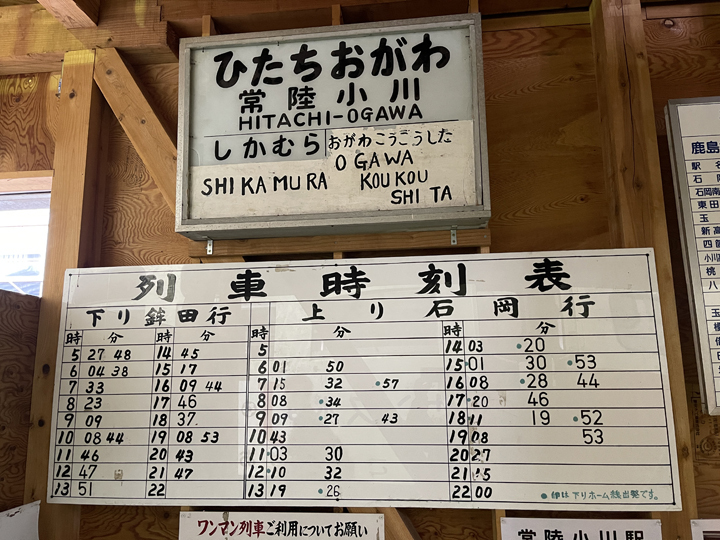 ひたちおがわ
常陸小川
HITACHI-OGAWA
しかむら おがわこうこうした
SHIKAMURA OGAWA KOUKOU SHITA
列車時刻表
下り鉾田行
時 分
5 27 48
6 04 38
7 33
8 23
9 09
10 08 44
11 46
12 47
13 51
時 分
14 45
15 17
16 09 44
17 46
18 37
19 08 53
20 43
21 47
22
上り石岡行
時 分
5
6 01 50
7 15 32 •57
8 08 •34
9 09 •27 43
10 43
11 03 30
12 •10 32
13 19 •26
時 分
14 03 •20
15 •01 30 •53
16 08 •28 44
17 •20 46
18 11 19 •52
19 08 53
20 27
21 15
22 00
ワンマン列車ご利用についてお願い
常陸小川駅
鹿島
駅名
石岡
石岡南
東田
玉
新高
四箇
小川
桃
八
玉